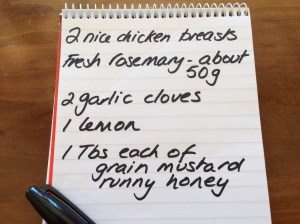 2 nice chicken breasts
Fresh rosemary - about
50g
2 garlic cloves
1 lemon
1 Tbs each of
grain mustard
runny honey